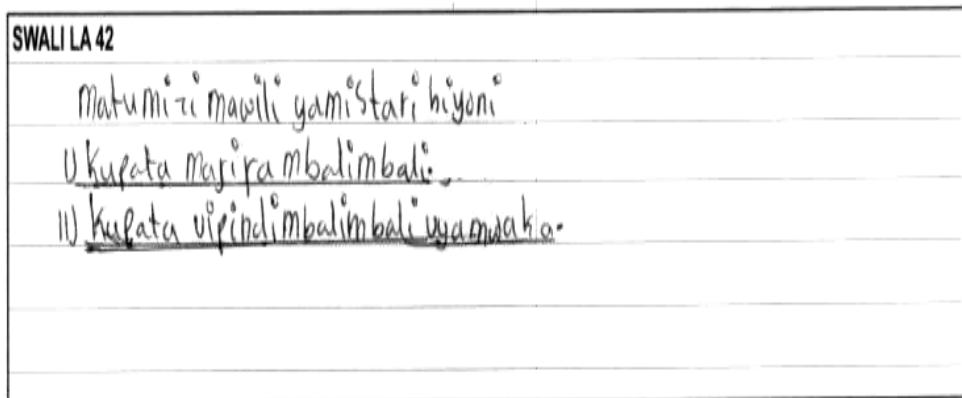 SWALI LA 42
matumizi mawili yamistari hiyoni
I) Kupata majira mbalimbali.
II) kupata vipindimbalimbali vyamwaka.